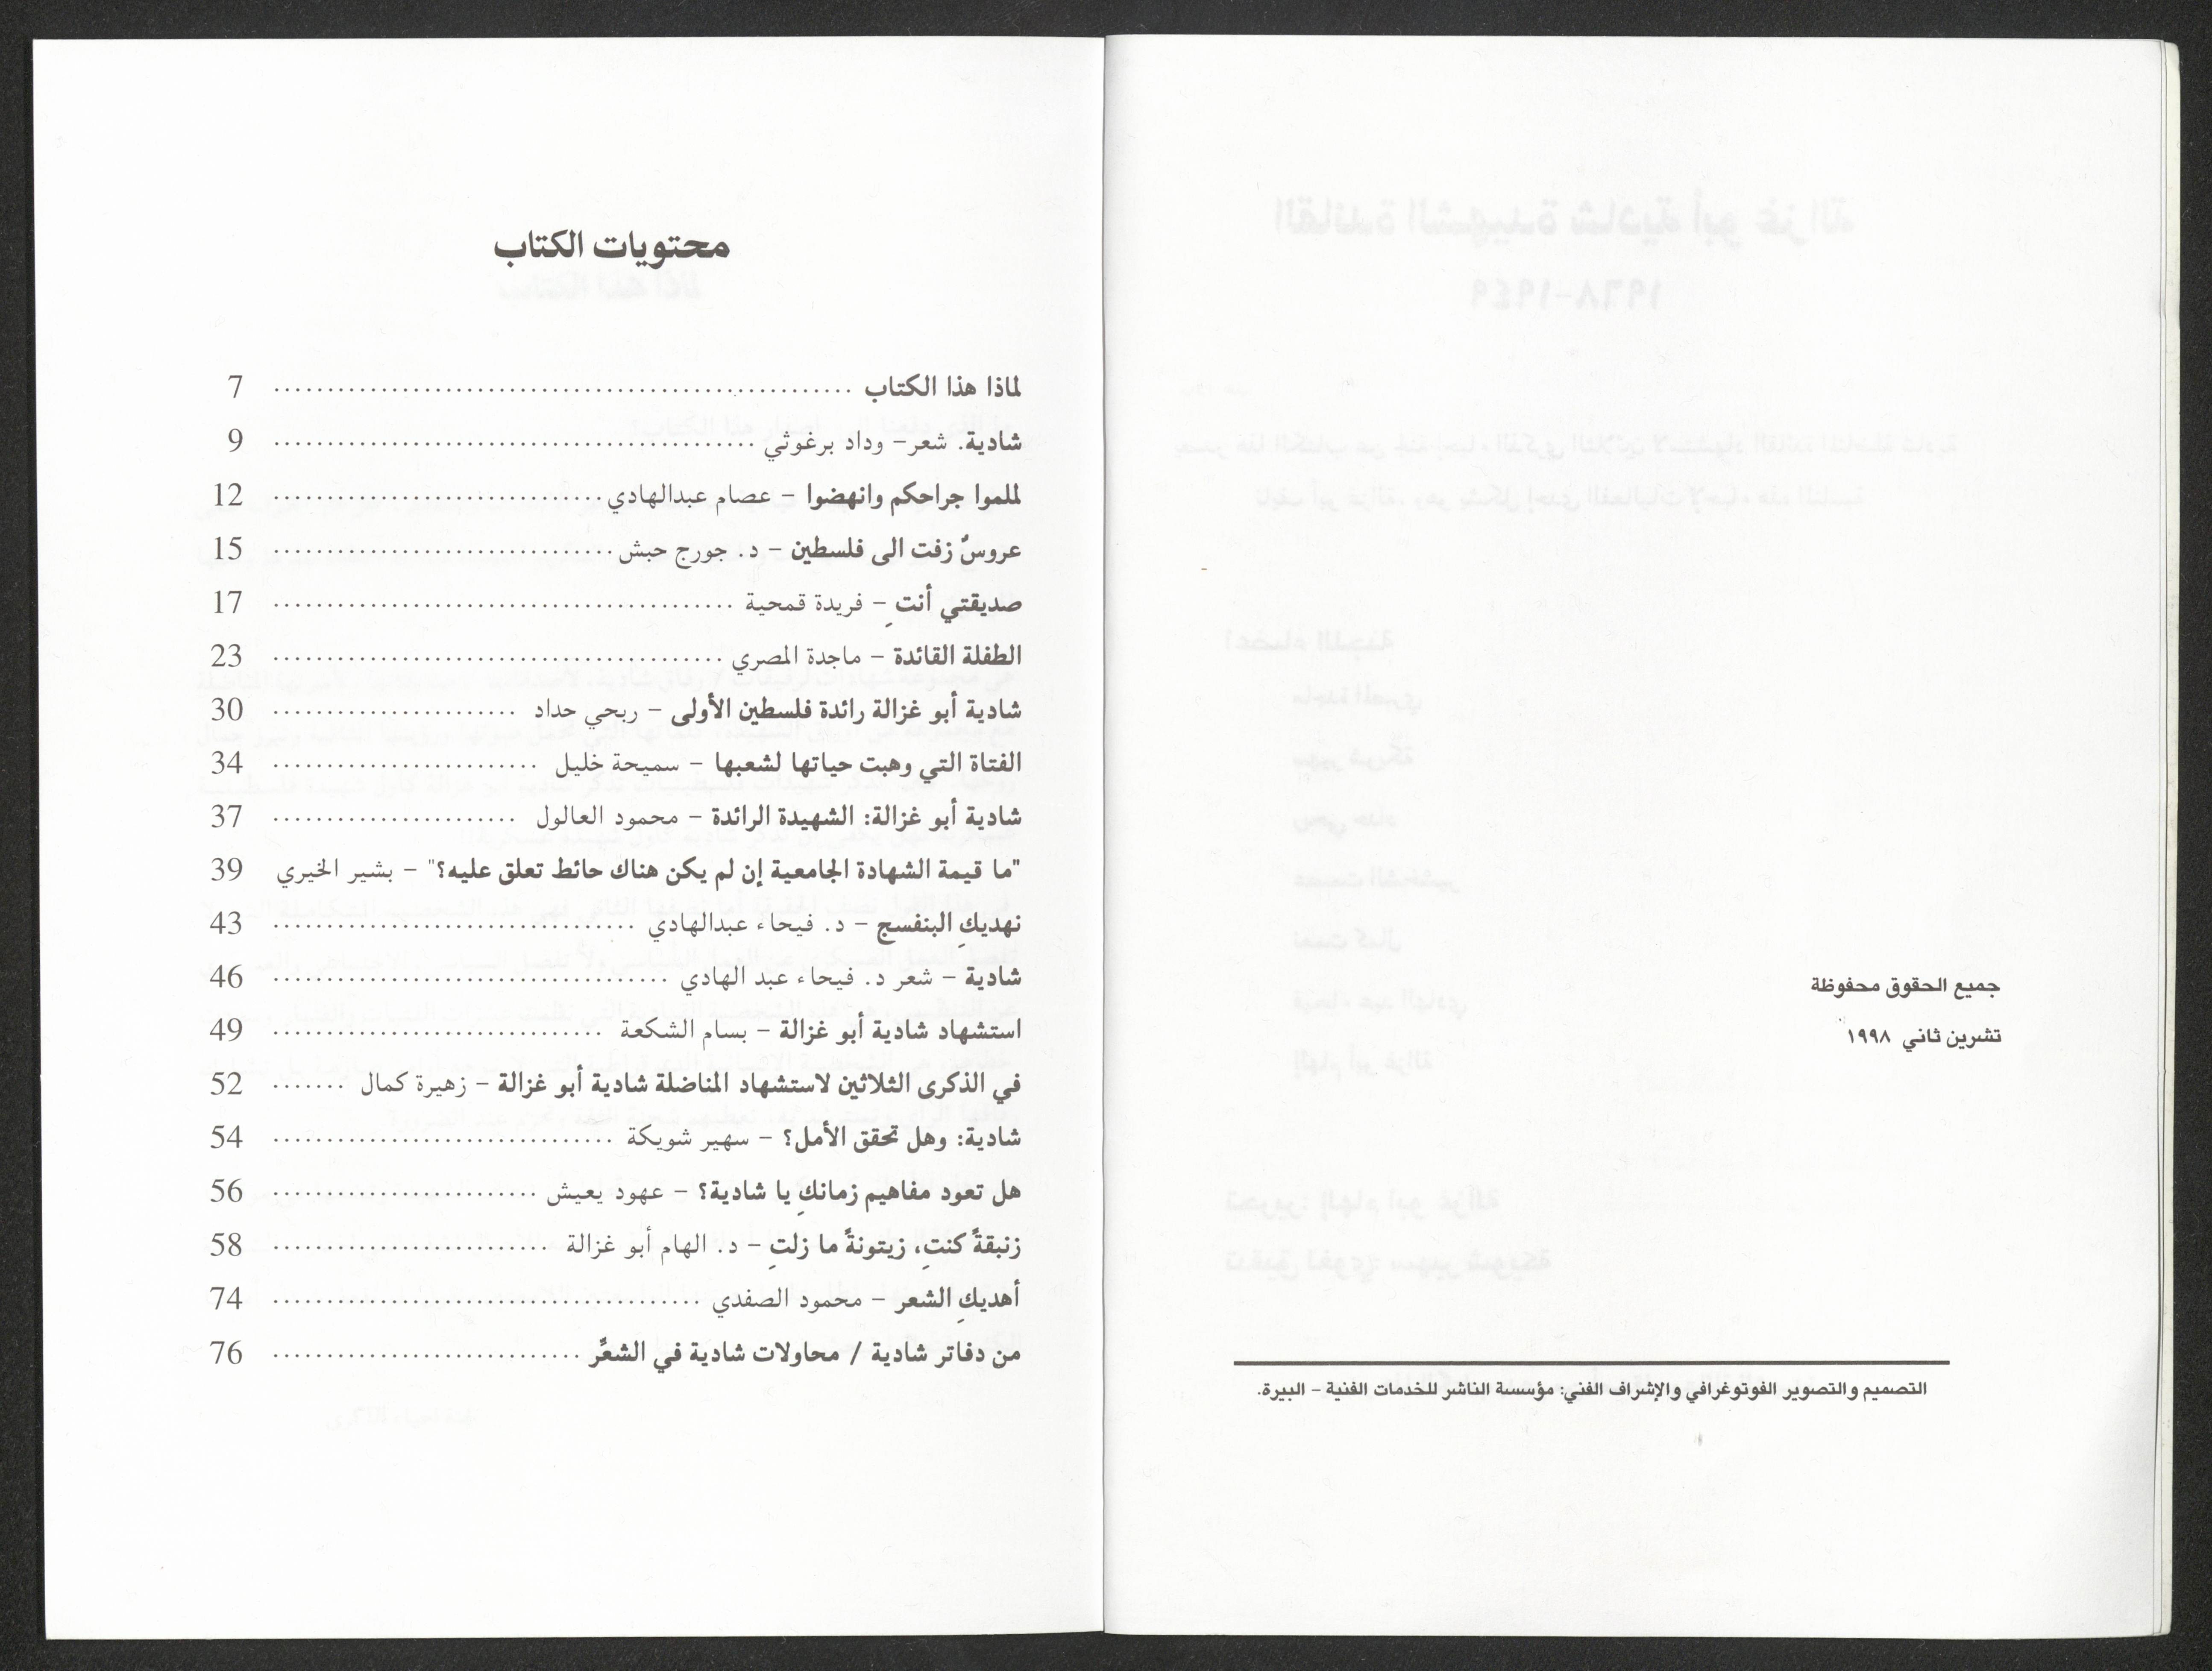 جميع الحقوق محفوظة
تشرين ثاني ١٩٩٨
التصميم والتصوير الفوتوغرافي والإشراف الفني: مؤسسة الناشر للخدمات الفنية – البيرة.
محتويات الكتاب
لماذا هذا الكتاب ........ 7
شادية. شعر– وداد برغوثي ........ 9
لملموا جراحكم وانهضوا – عصام عبدالهادي ........ 12
عروسٌ زفت الى فلسطين – د. جورج حبش ........ 15
صديقتي أنتِ – فريدة قمحية ........ 17
الطفلة القائدة – ماجدة المصري ........ 23
شادية أبو غزالة رائدة فلسطين الأولى – ربحي حداد ........ 30
الفتاة التي وهبت حياتها لشعبها – سميحة خليل ........ 34
شادية أبو غزالة: الشهيدة الرائدة – محمود العالول ........ 37
"ما قيمة الشهادة الجامعية إن لم يكن هناك حائط تعلق عليه؟" – بشير الخيري 39
نهديكِ البنفسج – د. فيحاء عبدالهادي ........ 43
شادية – شعر د. فيحاء عبد الهادي ........ 46
استشهاد شادية أبو غزالة – بسام الشكعة ........ 49
في الذكرى الثلاثين لاستشهاد المناضلة شادية أبو غزالة – زهيرة كمال ....... 52
شادية: وهل تحقق الأمل؟ – سهير شويكة ........ 54
هل تعود مفاهيم زمانكِ يا شادية؟ – عهود يعيش ........ 56
زنبقةً كنتِ، زيتونةً ما زلتِ – د. الهام أبو غزالة ........ 58
أهديكِ الشعر – محمود الصفدي ........ 74
من دفاتر شادية / محاولات شادية في الشعر ........ 76